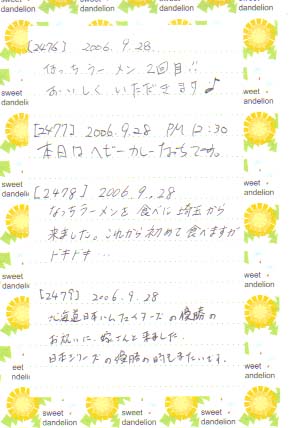 sweet dandelion
sweet dandelion
sweet dandelion
[2476] 2006.9.28
なっちラーメン 2回目!!
おいしく いただきます♪
[2477] 2006.9.28 PM 12:30
本日は ヘビーカレーなっちです。
[2478] 2006.9.28
なっちラーメンを 食べに 埼玉から
来ました。これから初めて食べますが
ドキドキ…
[2479] 2006.9.28
北海道日本ハムファイターズの優勝の
お祝いに、嫁さんと来ました。
日本シリーズの優勝の時もきたいです。
sweet dandelion
sweet dandelion
sweet dandelion